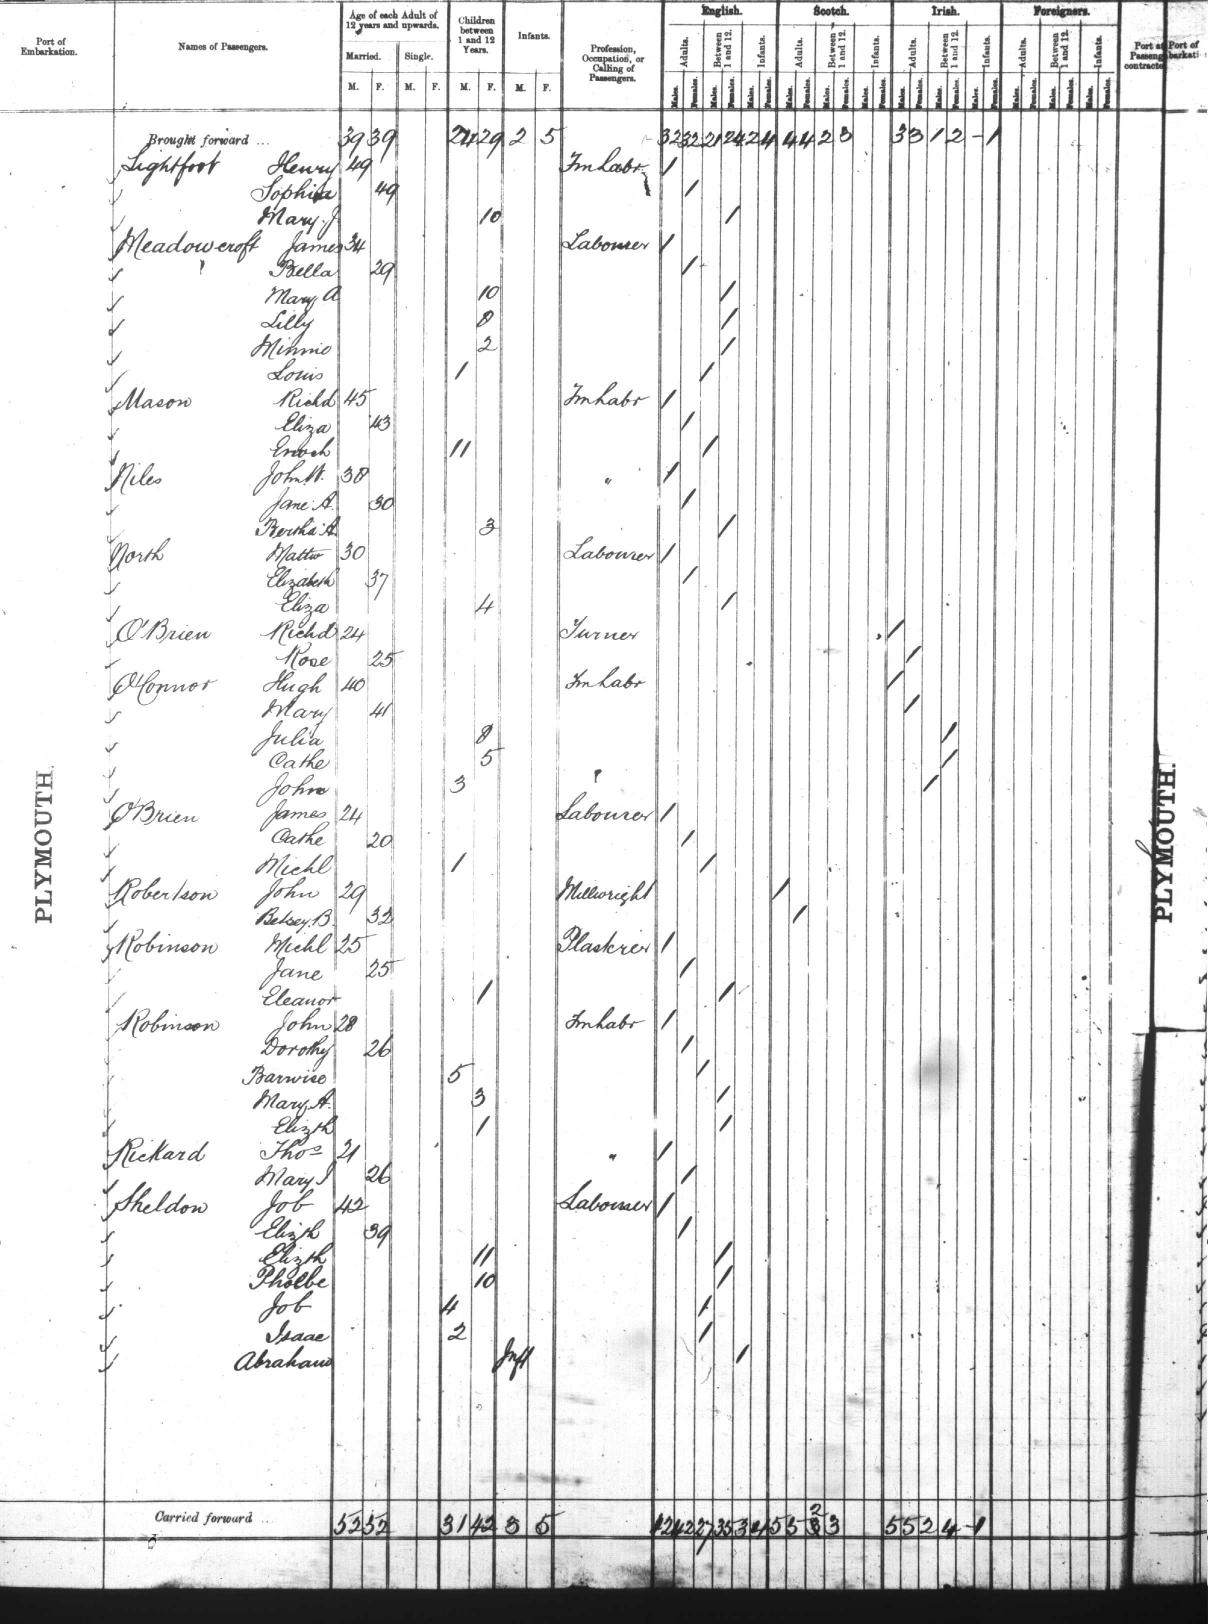 Port of Embarkation. Names of Passengers. Age of each Adult of 12 years and upwards. Married. Single. M. F. M. F. Children between 1 and 12 Years. M. F. Infants. M. F. Profession, Occupation, or Calling of Passengers. English. Scotch. Irish. Foreigners. Adults. Between 1 and 12. Infants. Males. Females. Port at Passeng contracte Port of barkati
Brought forward ... 39 39 24 29 2 5 32 32 21 24 2 4 4 4 2 3 3 3 1 2 - 1
Lightfoot Henry 49 Fm labr 1
Sophia 49 1
Mary J 10 1
Meadowcroft James 34 Labourer 1
Bella 29 1
Mary A 10 1
Lilly 8 1
Minnie 2 1
Louis 1 1
Mason Richd 45 Fm labr 1
Eliza 43 1
Enoch 11 1
Niles John W. 38 " 1
Jane A. 30 1
Bertha A 3 1
North Mattw 30 Labourer 1
Elizabeth 37 1
Eliza 4 1
O'Brien Richd 24 Turner 1
Rose 25 1
O'Connor Hugh 40 Fm labr 1
Mary 41 1
Julia 8 1
Cathe 5 1
John 3 1
O'Brien James 24 Labourer 1
Cathe 20 1
Michl 1 1
Robertson John 29 Millwright 1
Betsey B. 32 1
Robinson Michl 25 Plasterer 1
Jane 25 1
Eleanor 1 1
Robinson John 28 Fm labr 1
Dorothy 26 1
Barwise 5 1
Mary A. 3 1
Elizth 1 1
Rickard Thos 21 " 1
Mary J 26 1
Sheldon Job 42 Labourer 1
Elizth 39 1
Elizth 11 1
Phoebe 10 1
Job 4 1
Isaac 2 1
Abraham Inft 1
PLYMOUTH.
PLYMOUTH.
Carried forward .. 52 52 31 42 3 5 42 42 27 35 3 4 5 5 2 3 5 5 2 4 - 1